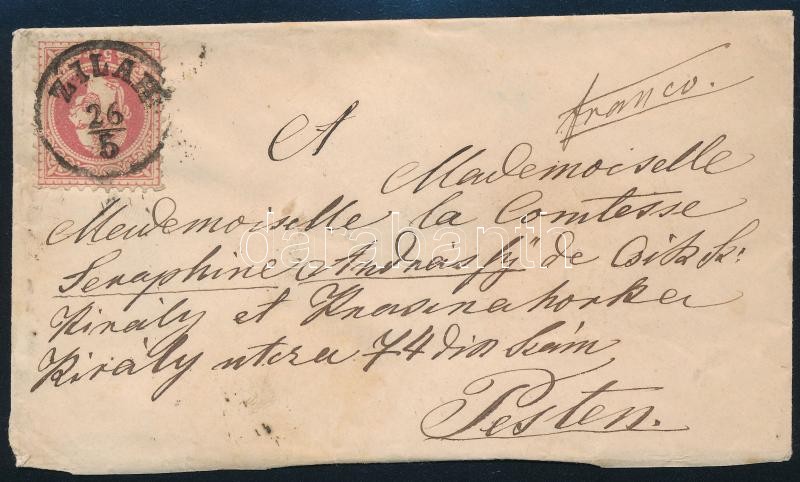 ZILAH
26/5
franco.
A Mademoiselle
Mademoiselle la Comtesse
Seraphine Andrássy de Csik Sz:
Király et Krasznahorka
Király utcza 74dik szám
Pesten.
darabanth